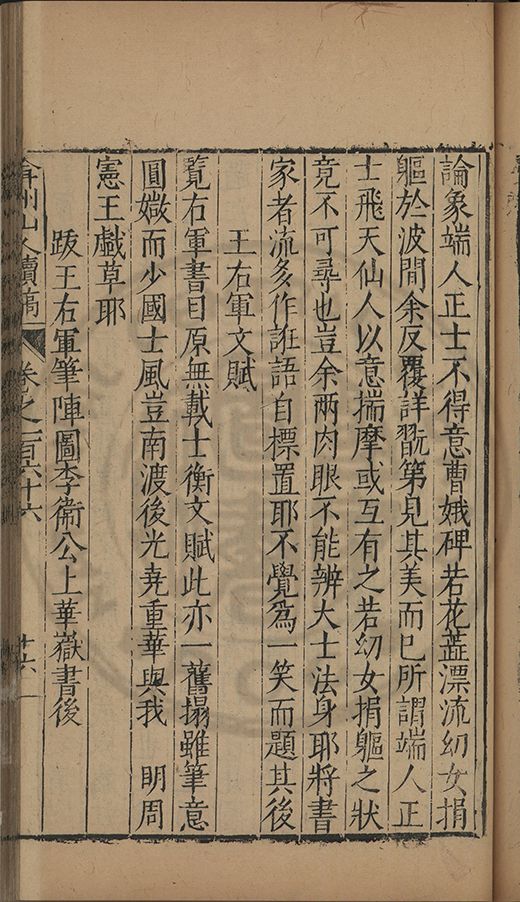 論象端人正士不得意曹娥碑若花蕋漂流幼女捐
軀於波間余反覆詳翫第見其美而已所謂端人正
士飛天仙人以意揣摩或互有之若幼女捐軀之狀
竟不可尋也豈余兩肉眼不能辨大士法身耶將書
家者流多作誑語自標置耶不覺為一笑而題其後
王右軍文賦
覽右軍書目原無載士衡文賦此亦一舊搨雖筆意
圓媺而少國士風豈南渡後光堯重華與我　明周
憲王戲草耶
跋王右軍筆陣圖李衛公上華嶽書後
弇州山人續稿　卷之一百六十六　十六